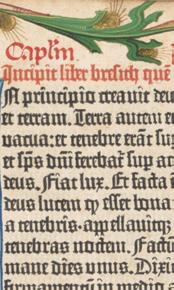 Caplm
Incipit liber bresich quē
A principio creavit deu
et terram. Terra autem e
vacua: et tenebre erāt sup
et sp̄s dn̄i ferebat̄ sup a
deus. Fiat lux. Et facta ē
deus lucem q̄ esset bona
a tenebris· appellavitq̨
tenebras noctem. Factū
mane dies vnus. Dixi
firmamentū in medio a